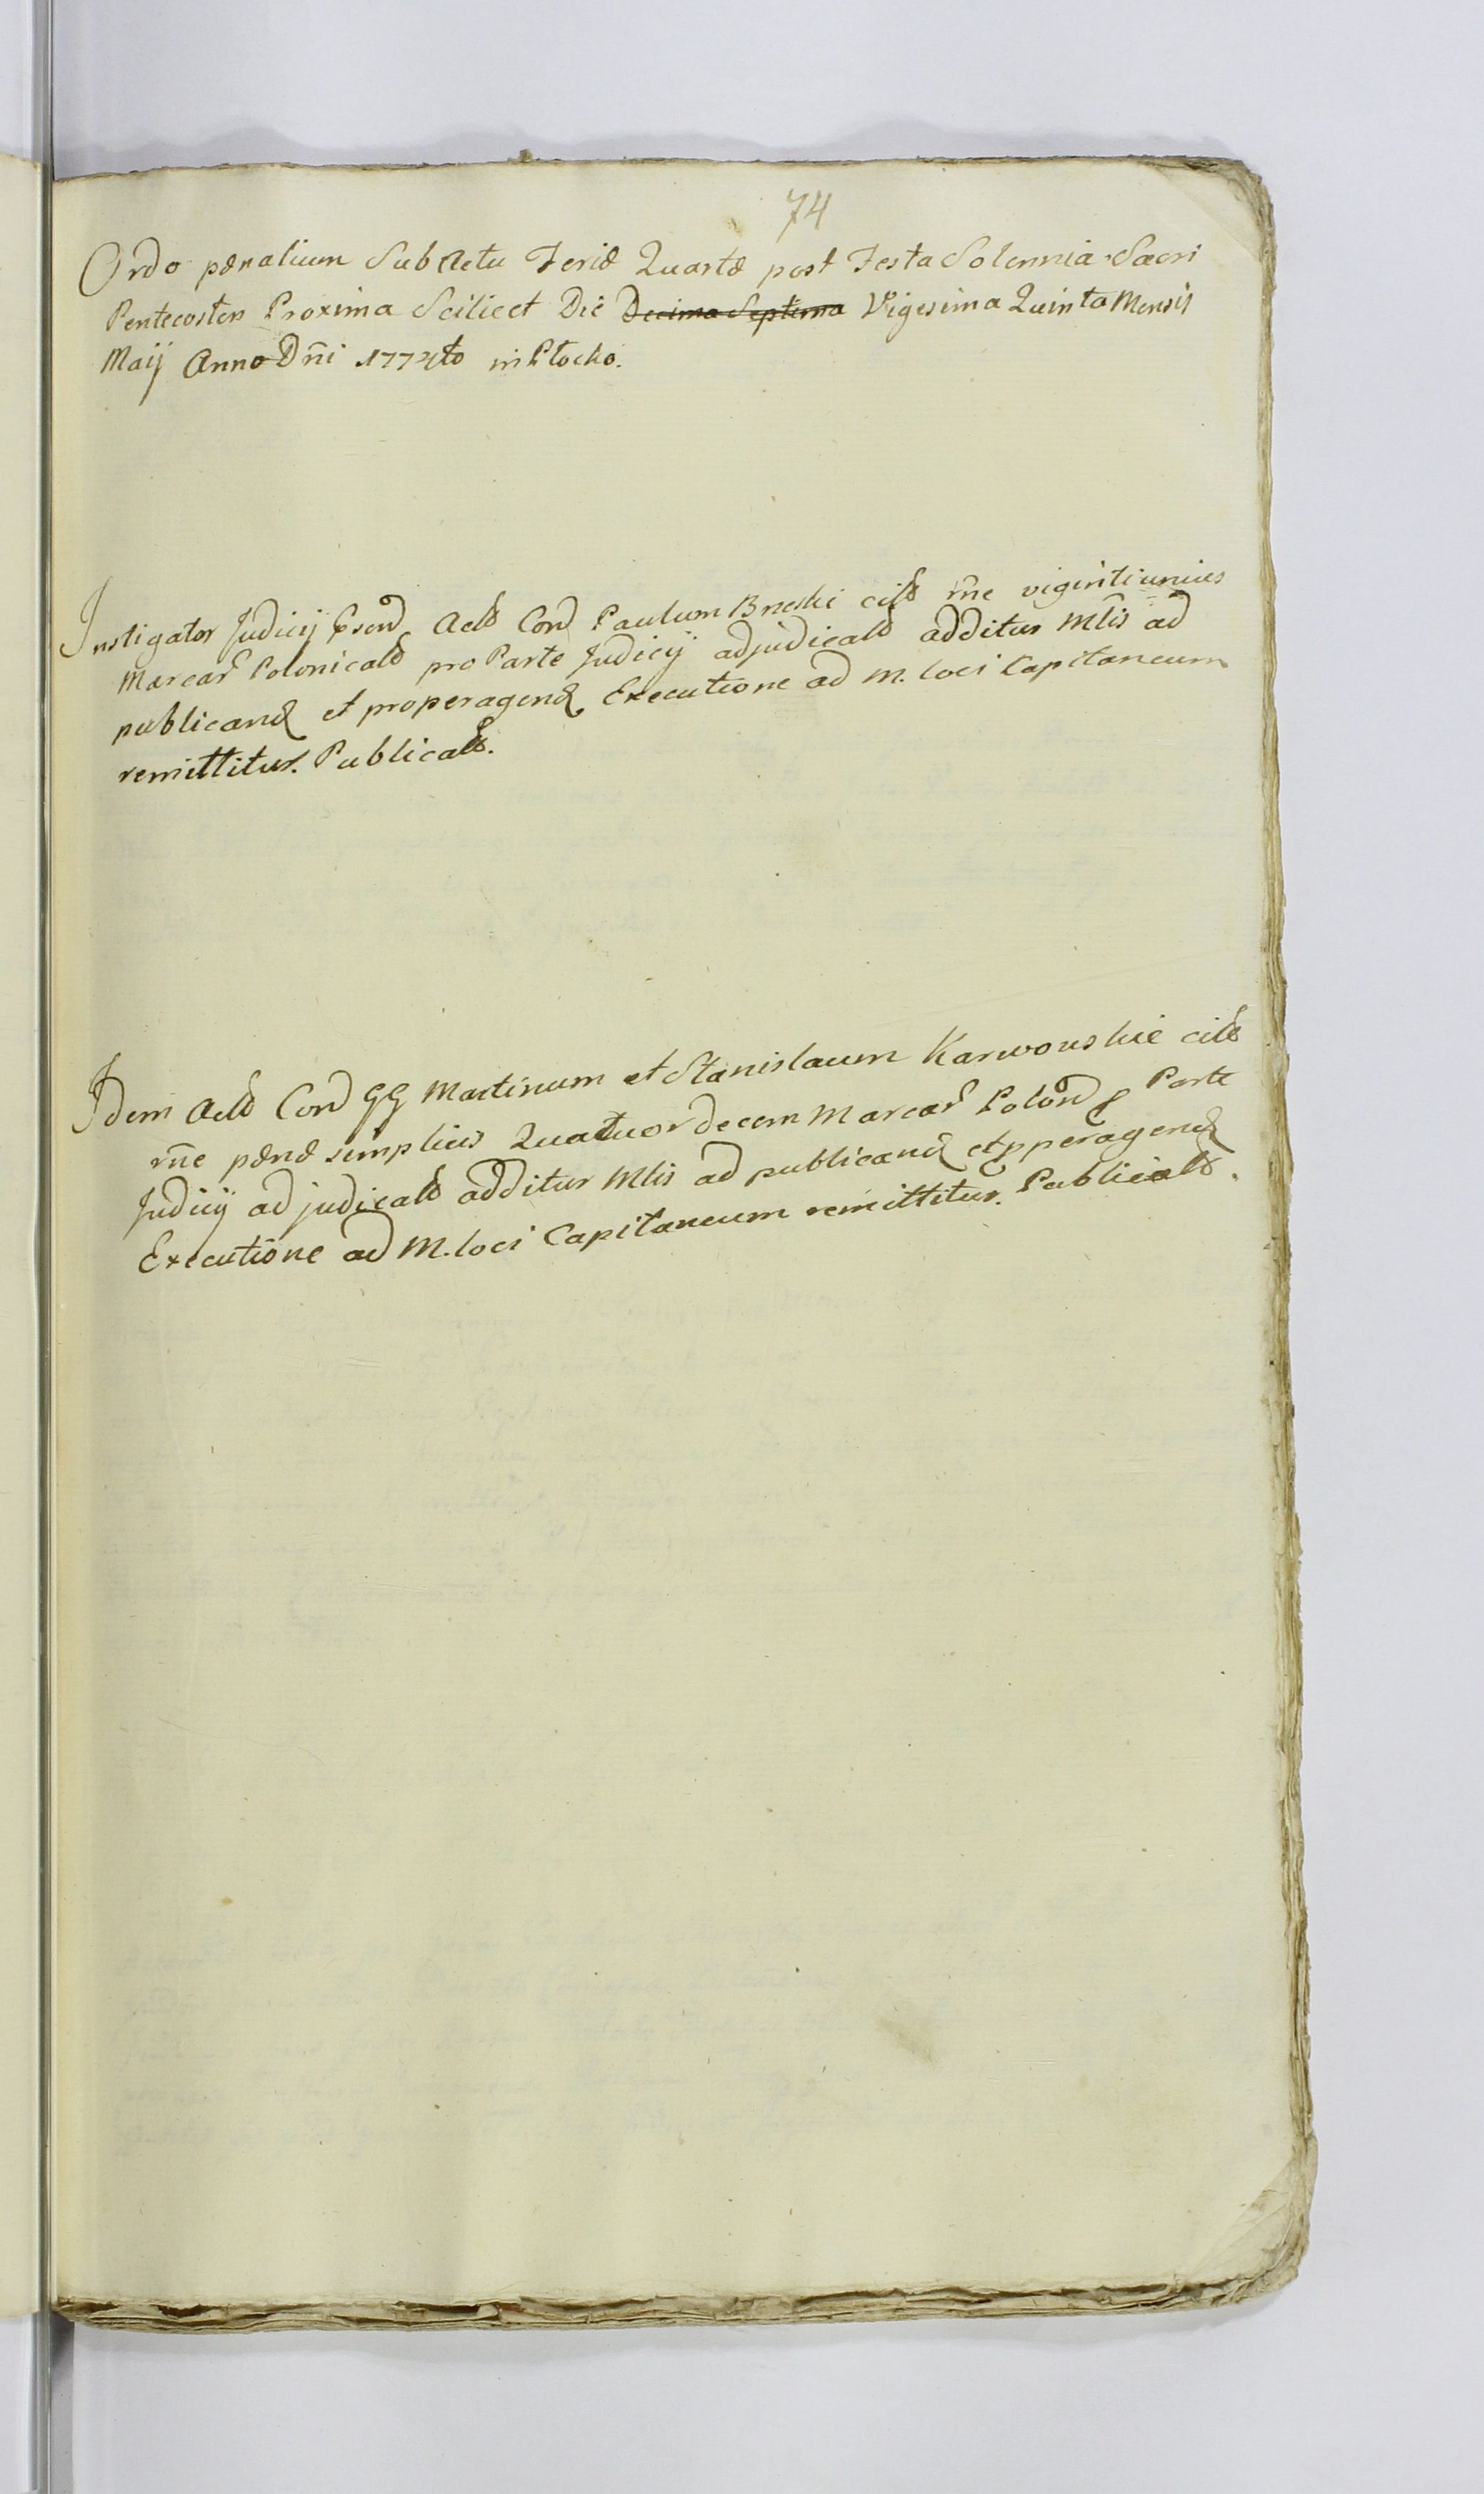 74
Ordo pænalium Sub Actu Feriæ Quartæ post Festa Solennia Sacri
Pentecosten Proxima Scilicet Die Decima Septima Vigesima Quinta Mensis
Maij Anno Dñi 1774to in Płocko.
Instigator Judicij Actŏ Con̄d Paulum Bneski citŏ rñe viginti unius
Marcar̄ Polonicalŏ pro Parte Judicij adjudicatŏ additur Mlis ad
publicand et pro peragend Executione ad M. loci Capitaneum
remittitur. Publicatŏ.
Idem Actŏ Con̄d GG Martinum et Stanislaum Karwowskie citŏ
rñe pænæ simplicis Quatuordecem Marcar̄ Polon̄ p Parte
Judicij adjudicatŏ additur Mlis ad publicand et p peragend
Executione ad M. loci Capitaneum remittitur. Publicatŏ.